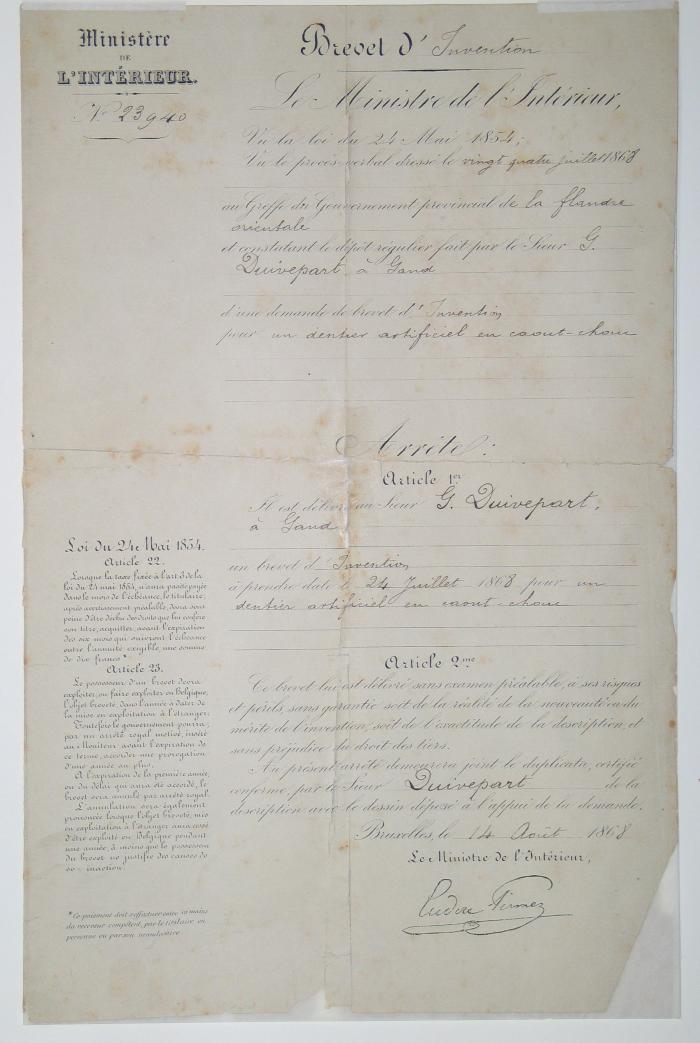 Ministère
DE
L'INTÉRIEUR.
N° 23940
Brevet d' Invention
Le Ministre de l'Intérieur,
Vu la loi du 24 Mai 1854;
Vu le procès-verbal dressé le vingt quatre juillet 1868
au Greffe du Gouvernement provincial de la flandre
orientale
et constatant le dépôt régulier fait par le Sieur G.
Duivepart à Gand
d'une demande de brevet d'Invention
pour un dentier artificiel en caout-chouc
Arrête:
Article 1er
Il est délivré au Sieur G. Duivepart,
à Gand,
un brevet d'Invention
à prendre date le 24 Juillet 1868 pour un
dentier artificiel en caout-chouc
Article 2me
Ce brevet lui est délivré sans examen préalable, à ses risques
et périls, sans garantie soit de la réalité de la nouveauté ou du
mérite de l'invention, soit de l'exactitude de la description, et
sans préjudice du droit des tiers.
Au présent arrêté demeurera joint le duplicata, certifié
conforme, par le Sieur Duivepart de la
description avec le dessin déposé à l'appui de la demande.
Bruxelles, le 14 Août 1868
Le Ministre de l'Intérieur,
Eudore Pirmez
Loi du 24 Mai 1854.
Article 22.
Lorsque la taxe fixée à l'art 3 de la
loi du 24 mai 1854, n'aura pas été payée
dans le mois de l'échéance, le titulaire,
après avertissement préalable, devra sous
peine d'être déchu des droits que lui confère
son titre, acquitter, avant l'expiration
des six mois qui suivront l'échéance
outre l'annuité exigible, une somme
de dix francs*
Article 23.
Le possesseur d'un brevet devra
exploiter, ou faire exploiter en Belgique,
l'objet breveté, dans l'année à dater de
la mise en exploitation à l'étranger.
Toutefois le gouvernement pourra,
par un arrêté royal motivé, inséré
au Moniteur avant l'expiration de
ce terme, accorder une prorogation
d'une année au plus.
A l'expiration de la première année,
ou du délai qui aura été accordé, le
brevet sera annulé par arrêté royal.
L'annulation sera également
prononcée lorsque l'objet breveté, mis
en exploitation à l'étranger aura cessé
d'être exploité en Belgique pendant
une année, à moins que le possesseur
du brevet ne justifie des causes de
son inaction.
*Ce paiement doit s'effectuer entre les mains
du receveur compétent, par le titulaire ou
personne ou par son mandataire